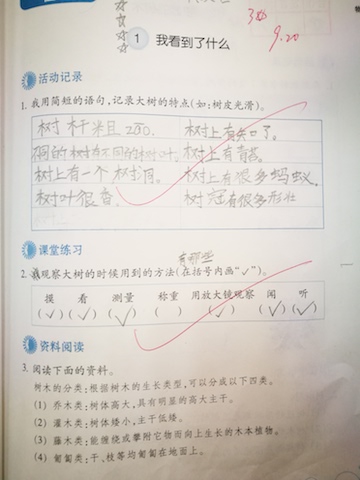 9.20
1 我看到了什么
活动记录
1. 我用简短的语句,记录大树的特点(如:树皮光滑)。
树上有
树上有青苔。
树上有一个树洞。 树上有很多蚂蚁。
树叶很香。 树冠有很多形状
课堂练习
有哪些
2. 我观察大树的时候用到的方法(在括号内画“✓”)。
摸 看 测量 称重 用放大镜观察 闻 听
(✓) (✓) (✓) ( ) (✓) (✓) (✓)
资料阅读
3. 阅读下面的资料。
树木的分类:根据树木的生长类型,可以分成以下四类。
(1) 乔木类:树体高大,具有明显的高大主干。
(2) 灌木类:树体矮小,主干低矮。
(3) 藤木类:能缠绕或攀附它物而向上生长的木本植物。
(4) 匍匐类:干、枝等均匍匐在地面上。